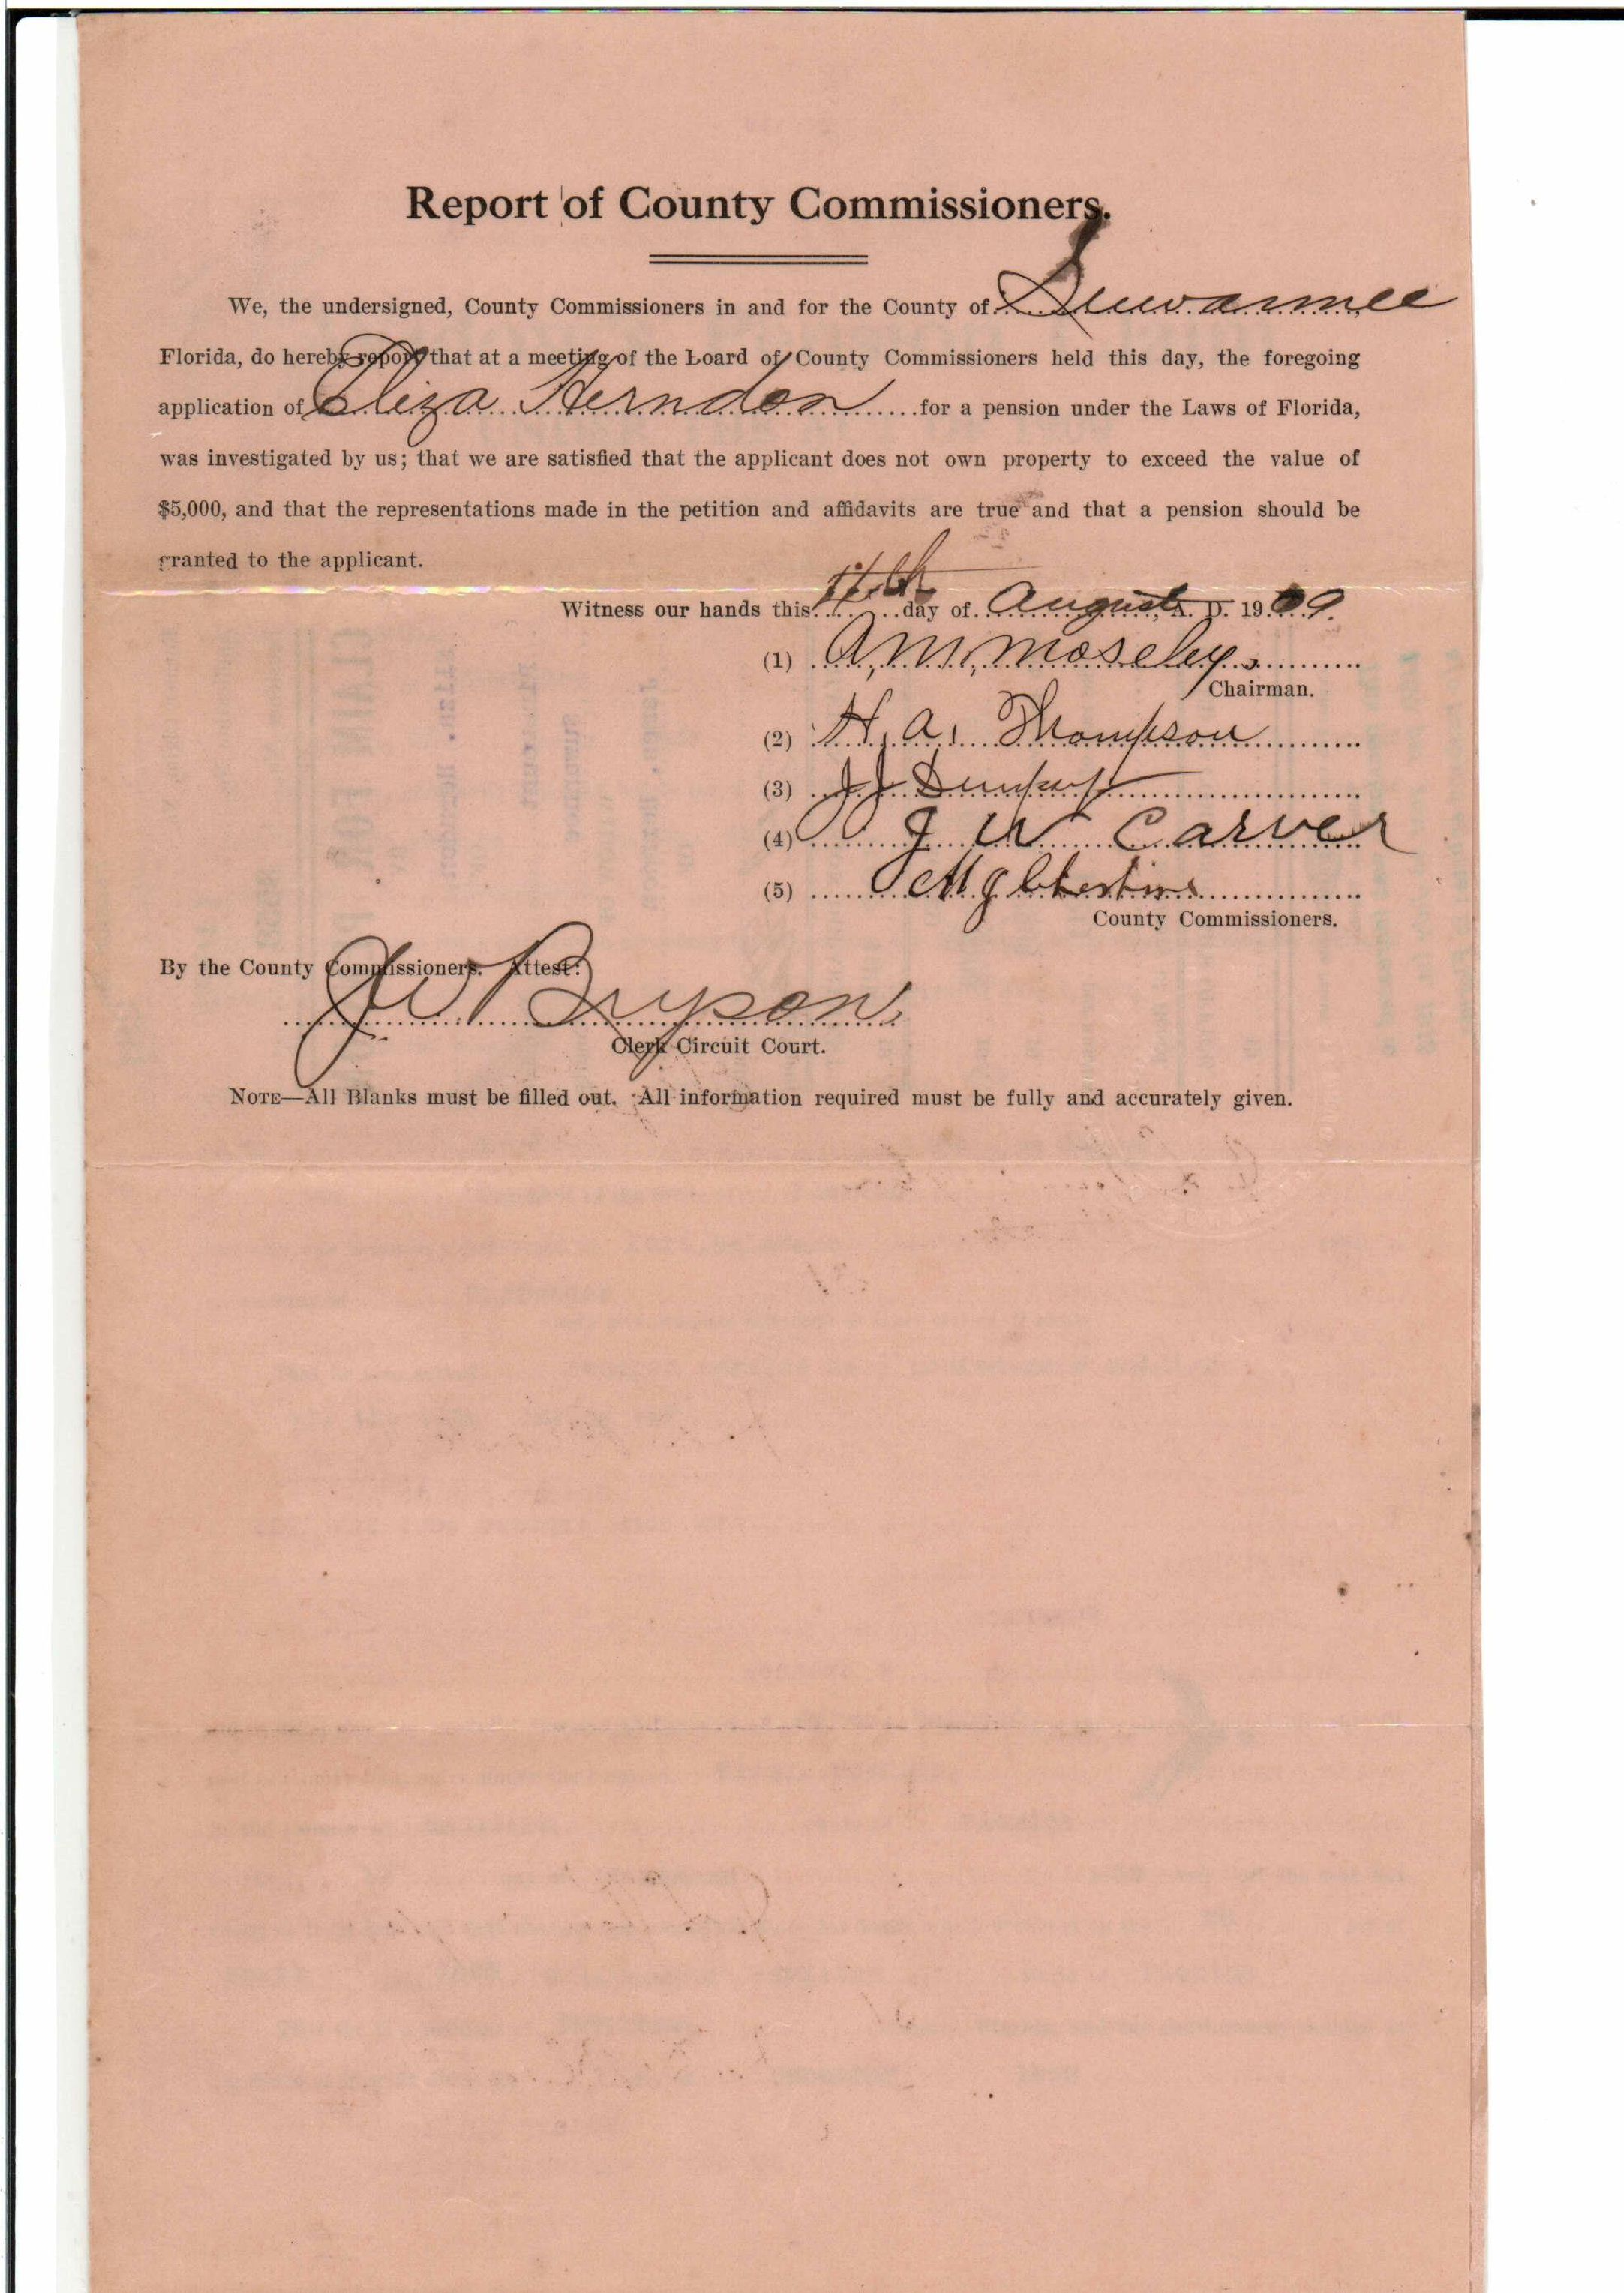 Report of County Commissioners.
We, the undersigned, County Commissioners in and for the County of Suwannee
Florida, do hereby report that at a meeting of the Loard of County Commissioners held this day, the foregoing
application of Eliza Herndon for a pension under the Laws of Florida,
was investigated by us; that we are satisfied that the applicant does not own property to exceed the value of
$5,000, and that the representations made in the petition and affidavits are true and that a pension should be
granted to the applicant.
Witness our hands this day of August, A. D. 1909.
(1) A. M. Moseley
Chairman.
(2) H. A. Thompson
(3) J J
(4) J W Carver
(5)
County Commissioners.
By the County Commissioners. Attest:
J W Bryson
Clerk Circuit Court.
NOTE—All Blanks must be filled out. All information required must be fully and accurately given.